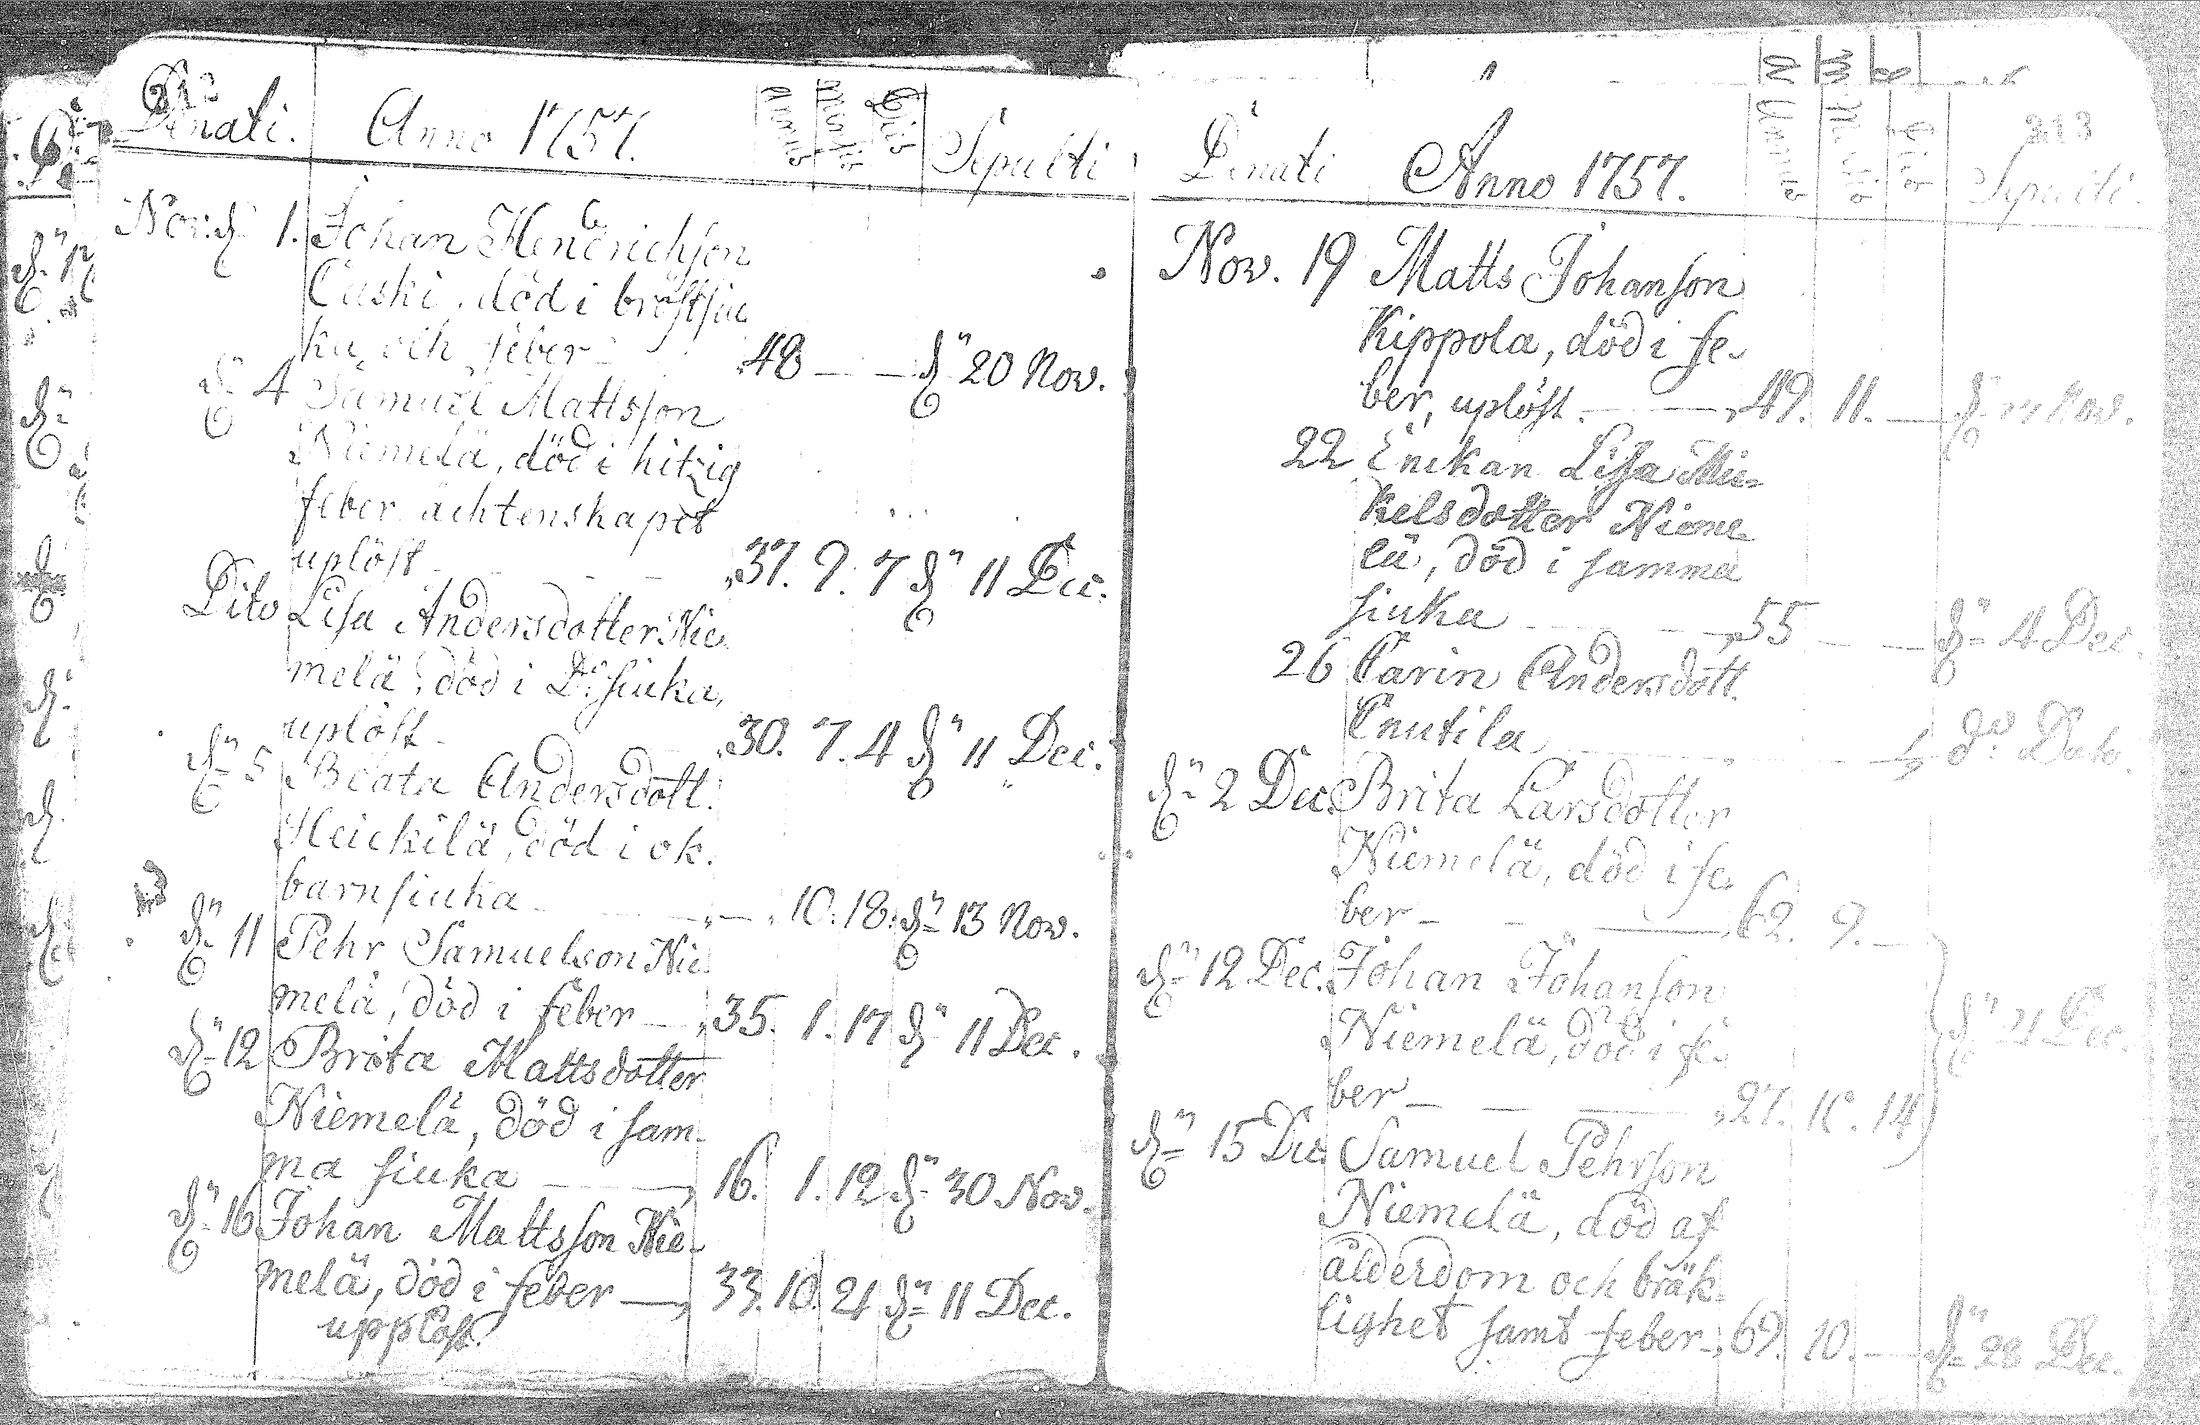 212
Denati. Anno 1757. Annus Mensis Dies Sepulti
Nov: d. 1. Johan Hendrichson
Caski, död i bröstsiu
ka och feber 48 — — dn 20 Nov.
dn 4 Samuel Mattsson
Niemelä, död i hitzig
feber ächtenskapet
uplöst 37. 9. 7 dn 11 Dec.
Dito Lisa Andersdotter Nie
melä, död i Do siuka,
uplöst 30. 7. 4 dn 11 Dec.
dn 5 Beata Andersdott.
Heickilä, död i ok.
barnsiuka — 10. 18. dn 13 Nov.
dn 11 Pehr Samuelson Nie
melä, död i feber — 35. 1. 17 dn 11 Dec.
dn 12 Brita Mattsdotter
Niemelä, död i sam-
ma siuka — 16. 1. 12 dn 30 Nov.
dn 16 Johan Mattsson Nie-
melä, död i feber — 33. 10. 21 dn 11 Dec.
upplöst.
213
Denati Anno 1757. Annus Mensis Dies Sepulti.
Nov. 19 Matts Johanson
Kippola, död i fe-
ber, uplöst. — 49. 11. — dn Nov.
22 Enckan Lisa Mic-
kelsdotter Nieme
lä, död i samma
siuka — 55 — — dn 4 Dec.
26 Carin Andersdott.
Cnutila do Dato.
dn 2 Dec. Brita Larsdotter
Niemelä, död i fe
ber — 62. 9. —
dn 12 Dec. Johan Johanson
Niemelä, död i fe- dn 21 Dec.
ber — 27. 10. 14
dn 15 Dec. Samuel Pehrson
Niemelä, död af
ålderdom och bräk-
lighet samt feber 69. 10. — dn 28 Dec.